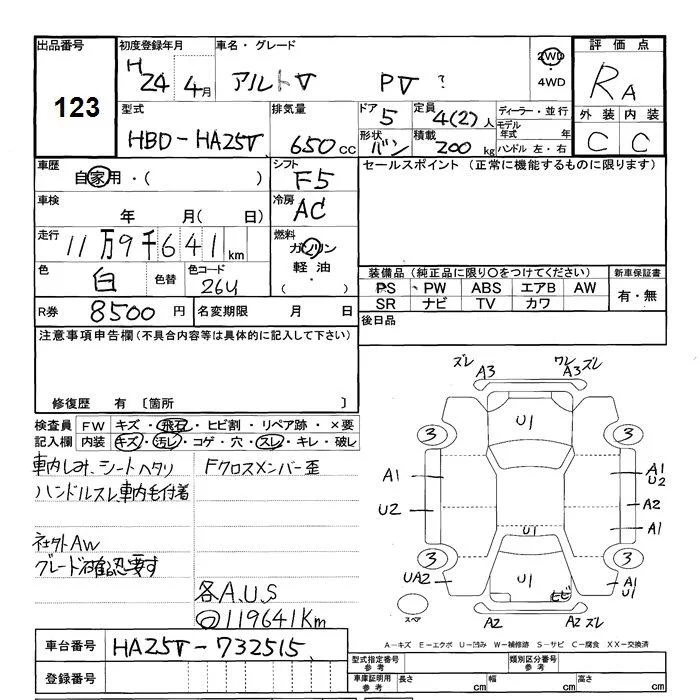 出品番号
123
初度登録年月
H 24 4月
車名・グレード
アルトV PV ?
2WD
4WD
評価点
RA
外装 内装
C C
型式
HBD-HA25V
排気量
650cc
ドア 5
形状 バン
定員 4(2)人
積載 200kg
ディーラー・並行
モデル年式 年
ハンドル 左・右
車歴
自家用・( )
シフト
F5
セールスポイント (正常に機能するものに限ります)
車検
年 月( 日)
冷房
AC
走行
11万9千641km
燃料
ガソリン
軽油
・( )
色
白
色替
色コード
26U
装備品 (純正品に限り○をつけてください)
PS PW ABS エアB AW
SR ナビ TV カワ
新車保証書
有・無
R券 8500円
名変期限 月 日
後日品
注意事項申告欄(不具合内容等は具体的に記入して下さい)
修復歴 有 〔箇所 〕
検査員記入欄
FW キズ・飛石・ヒビ割・リペア跡・×要
内装 キズ・汚レ・コゲ・穴・スレ・キレ・破レ
車内しみ、シートヘタリ
ハンドルスレ車内毛付着
社外AW
グレード確認要す
Fクロスメンバー歪
各A.U.S
◎119641Km
ズレ
A3
ワレ
A3ズレ
U1
3
3
A1
U2
A1
U2
A2
A1
U1
3
3
UA2
U1
ヒビ
A1
U1
スペア
A2
A2ズレ
A-キズ E-エクボ U-凹み W-補修跡 S-サビ C-腐食 XX-交換済
車台番号
HA25V-732515
登録番号
型式指定番号
参考
類別区分番号
参考
車庫証明用
参考
長さ cm
幅 cm
高さ cm